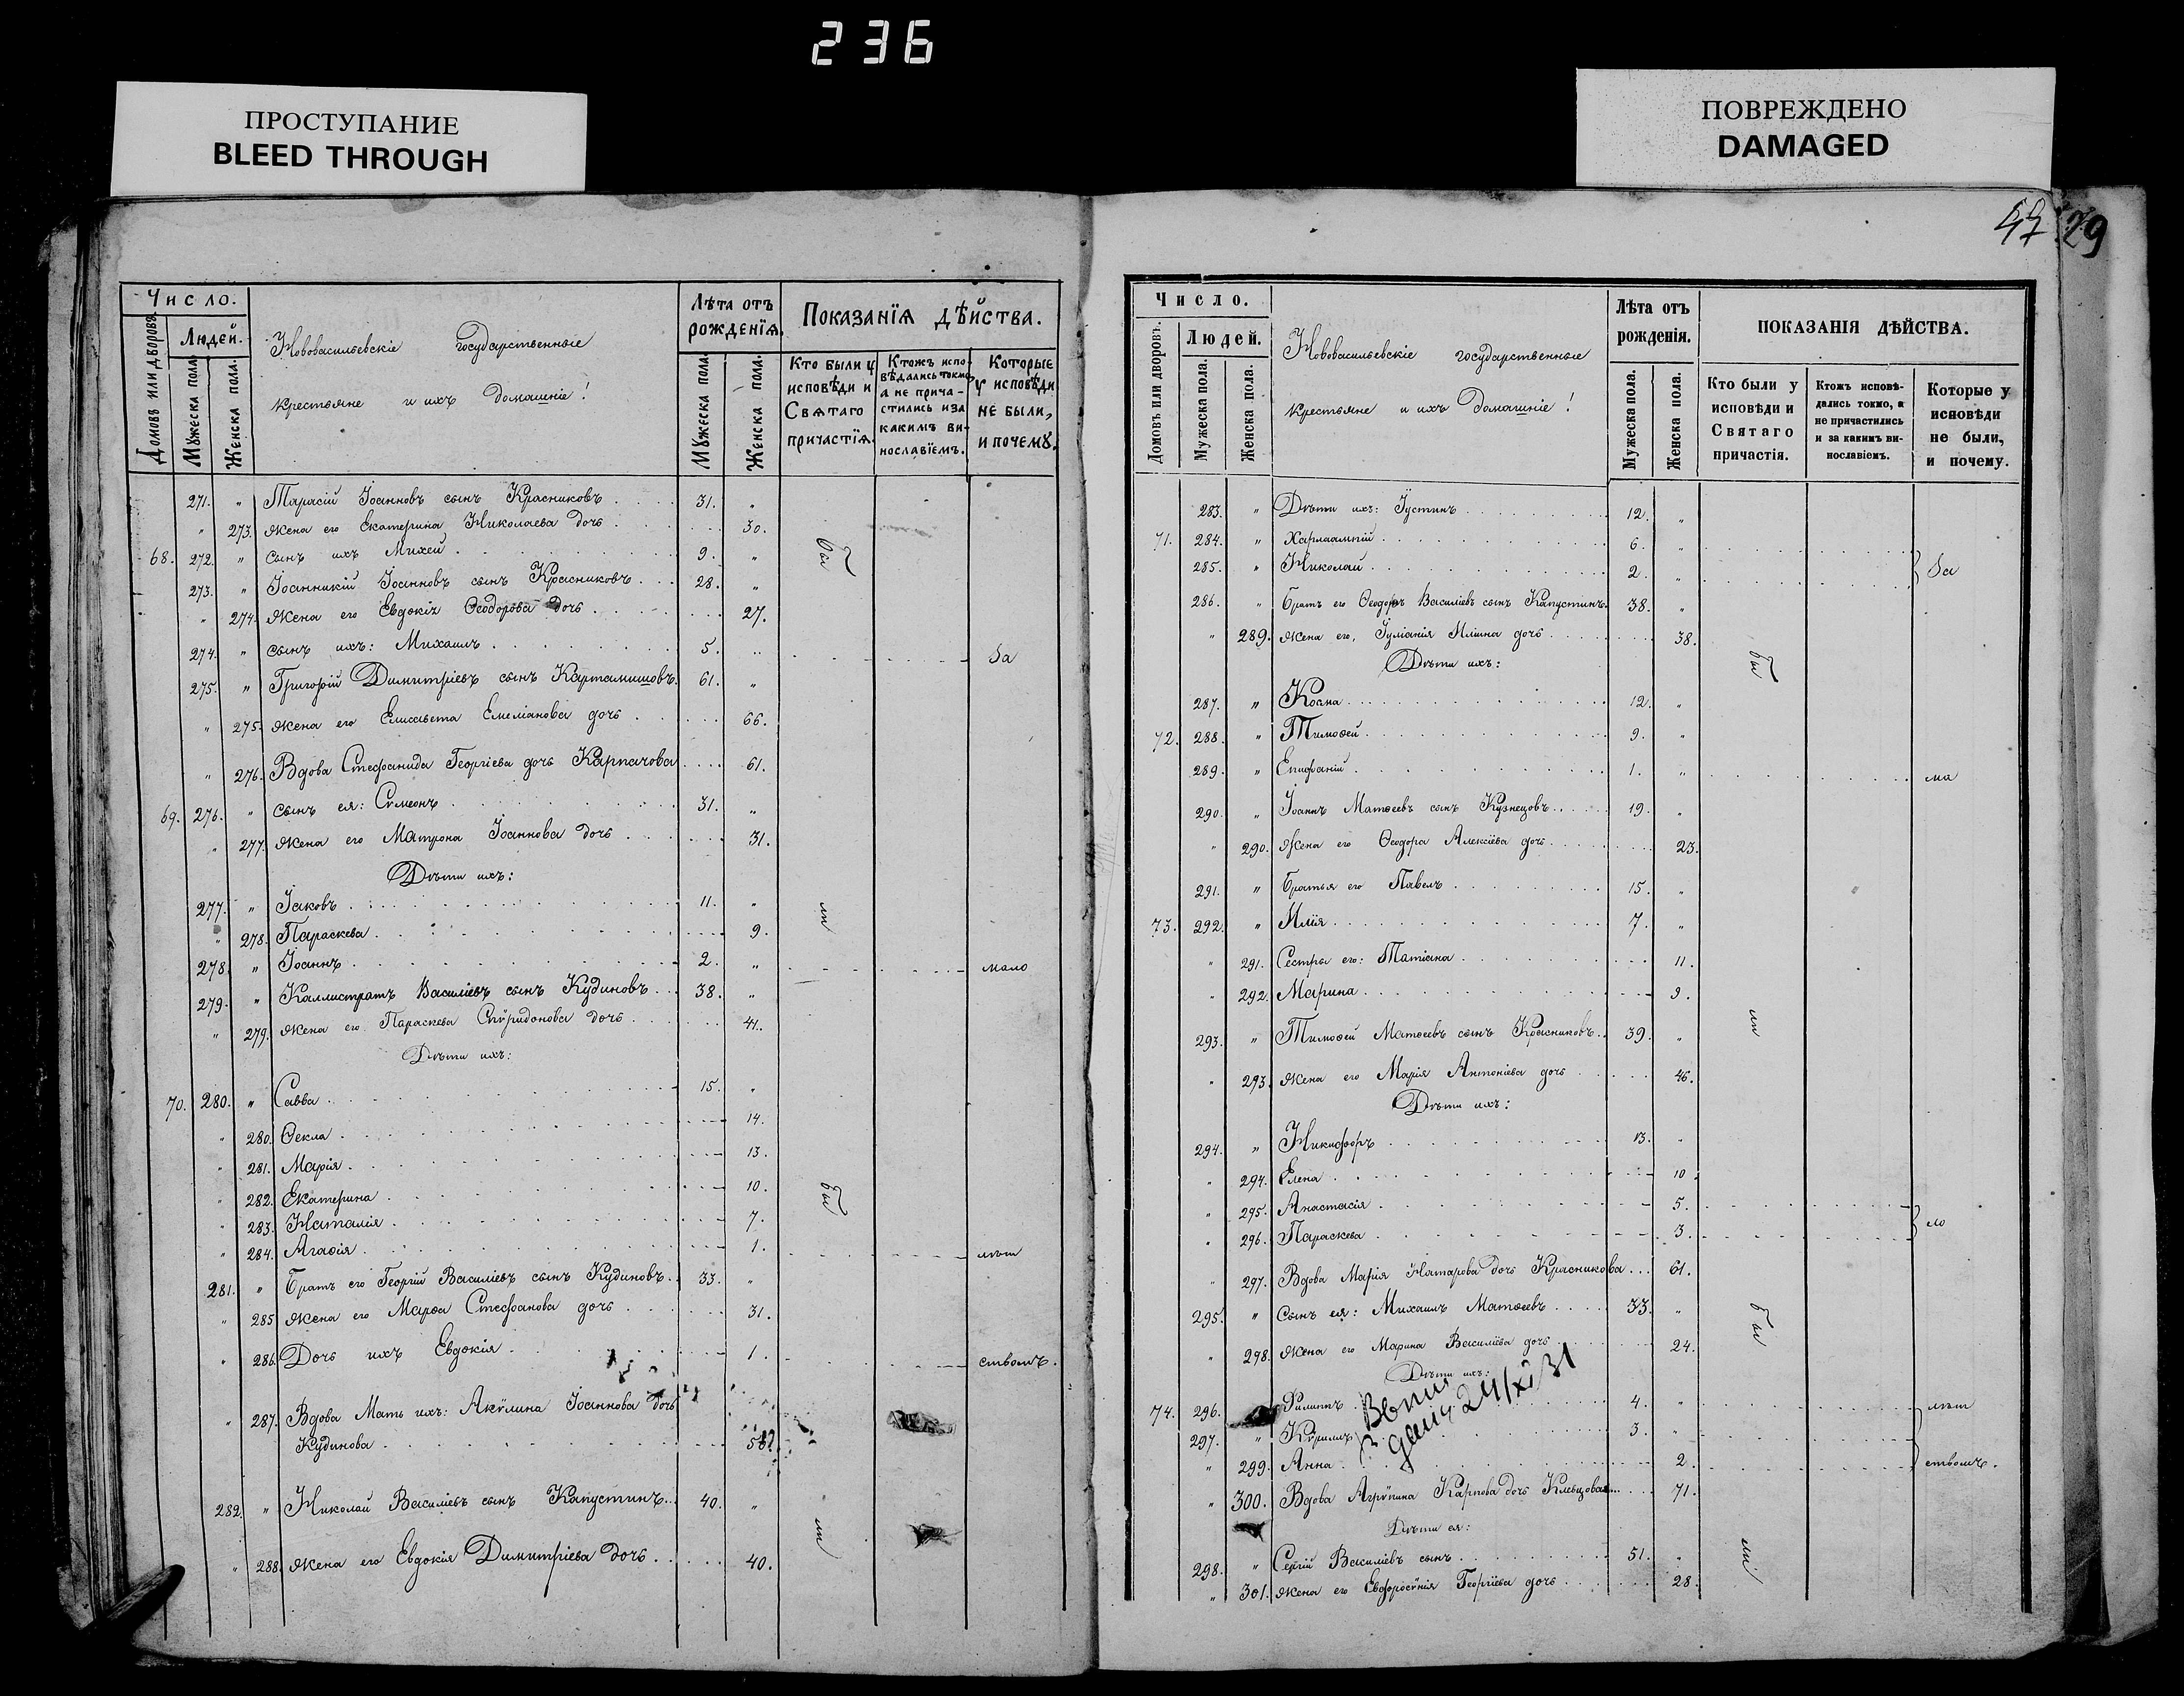 236
ПРОСТУПАНИЕ
BLEED THROUGH
ПОВРЕЖДЕНО
DAMAGED
47 29
Число.
Домовъ или дворовъ.
Людей.
Мужеска пола.
Женска пола.
Нововасильевскіе государственные
крестьяне и ихъ домашніе!
Лѣта отъ
рожденія.
Мужеска пола.
Женска пола.
Показанія дѣйства.
Кто были у
исповѣди и
Святаго
причастія.
Ктожъ испо-
вѣдались токмо,
а не прича-
стились и за
какимъ ви-
нославіемъ.
Которые
у исповѣди
не были,
и почему.
271. „ Тарасій Іоанновъ сынъ Красниковъ 31. „
„ 273. Жена его Екатерина Николаева дочь 30.
68. 272. „ Сынъ ихъ Михей 9. „ бы
273. „ Іоанникій Іоанновъ сынъ Красниковъ 28. „
„ 274. Жена его Евдокія Ѳеодорова дочь 27.
274. „ Сынъ ихъ: Михаилъ 5. „ За
275. „ Григорій Димитріевъ сынъ Картамишовъ 61. „
„ 275. Жена его Елисавета Емеліанова дочь 66.
„ 276. Вдова Стефанида Георгіева дочь Карпачова 61.
69. 276. „ Сынъ ея: Сѵмеонъ 31. „
„ 277. Жена его Матрона Іоаннова дочь 31.
Дѣти ихъ:
277. „ Іаковъ 11. „ ли
„ 278. Параскева 9.
278. „ Іоаннъ 2. „ мало
279. „ Каллистратъ Василіевъ сынъ Кудиновъ 38. „
„ 279. Жена его Параскева Спѵридонова дочь 41.
Дѣти ихъ:
70. 280. „ Савва 15. „
„ 280. Ѳекла 14.
„ 281. Марія 13.
„ 282. Екатерина 10. бы
„ 283. Наталія 7.
„ 284. Агаѳія 1. лѣт
281. „ Братъ его Георгій Василіевъ сынъ Кудиновъ 33. „
„ 285 Жена его Марѳа Стефанова дочь 31.
„ 286. Дочь ихъ Евдокія 1. ствомъ.
„ 287. Вдова Мать ихъ: Акѵлина Іоаннова дочь
Кудинова
282. „ Николай Василіевъ сынъ Капустинъ 40. „ ли
„ 288. Жена его Евдокія Димитріева дочь 40.
Число.
Домовъ или дворовъ.
Людей.
Мужеска пола.
Женска пола.
Нововасильевскіе государственные
крестьяне и ихъ домашніе!
Лѣта отъ
рожденія.
Мужеска пола.
Женска пола.
ПОКАЗАНІЯ ДѢЙСТВА.
Кто были у
исповѣди и
Святаго
причастія.
Ктожъ исповѣ-
дались токмо, а
не причастились
и за какимъ ви-
нославіемъ.
Которые у
исповѣди
не были,
и почему.
283. „ Дѣти ихъ: Іустинъ 12. „
71. 284. „ Харлампій 6. „
285. „ Николай 2. „ За
286. „ Братъ его Ѳеодоръ Василіевъ сынъ Капустинъ 38. „
„ 289. Жена его, Іуліанія Иліина дочь 38.
Дѣти ихъ: бы
287. „ 12. „
72. 288. „ Тимоѳей 9. „
289. „ Епифаній 1. „ ма
290. „ Іоаннъ Матѳеевъ сынъ Кузнецовъ 19. „
„ 290. Жена его Ѳеодора Алексіева дочь 23.
291. „ Братья его Павелъ 15. „
73. 292. „ Илія 7. „
„ 291. Сестры его: Татіана 11.
„ 292. Марина 9.
293. „ Тимоѳей Матѳеевъ сынъ Красниковъ 39. „ ли
„ 293. Жена его Марія Антоніева дочь 46.
Дѣти ихъ:
294. „ Никифоръ 13. „
„ 294. Елена 10.
„ 295. Анастасія 5.
„ 296. Параскева 3. ло
„ 297. Вдова Марія Назарова дочь Красникова 61.
295. „ Сынъ ея: Михаилъ Матѳеевъ 33. „ бы
„ 298. Жена его Марина Василіева дочь 24.
Дѣти ихъ:
74. 296. Филиппъ 4. „ лѣт
297. „ Кѵриллъ 3. „
24/XI 31
„ 299. Анна 2. ствомъ.
„ 300. Вдова Агрѵпина Карпова дочь 71.
Дѣти ея:
298. „ Сергій Василіевъ сынъ 51. „ ли
„ 301. Жена его Евфросѵнія Георгіева дочь 28.